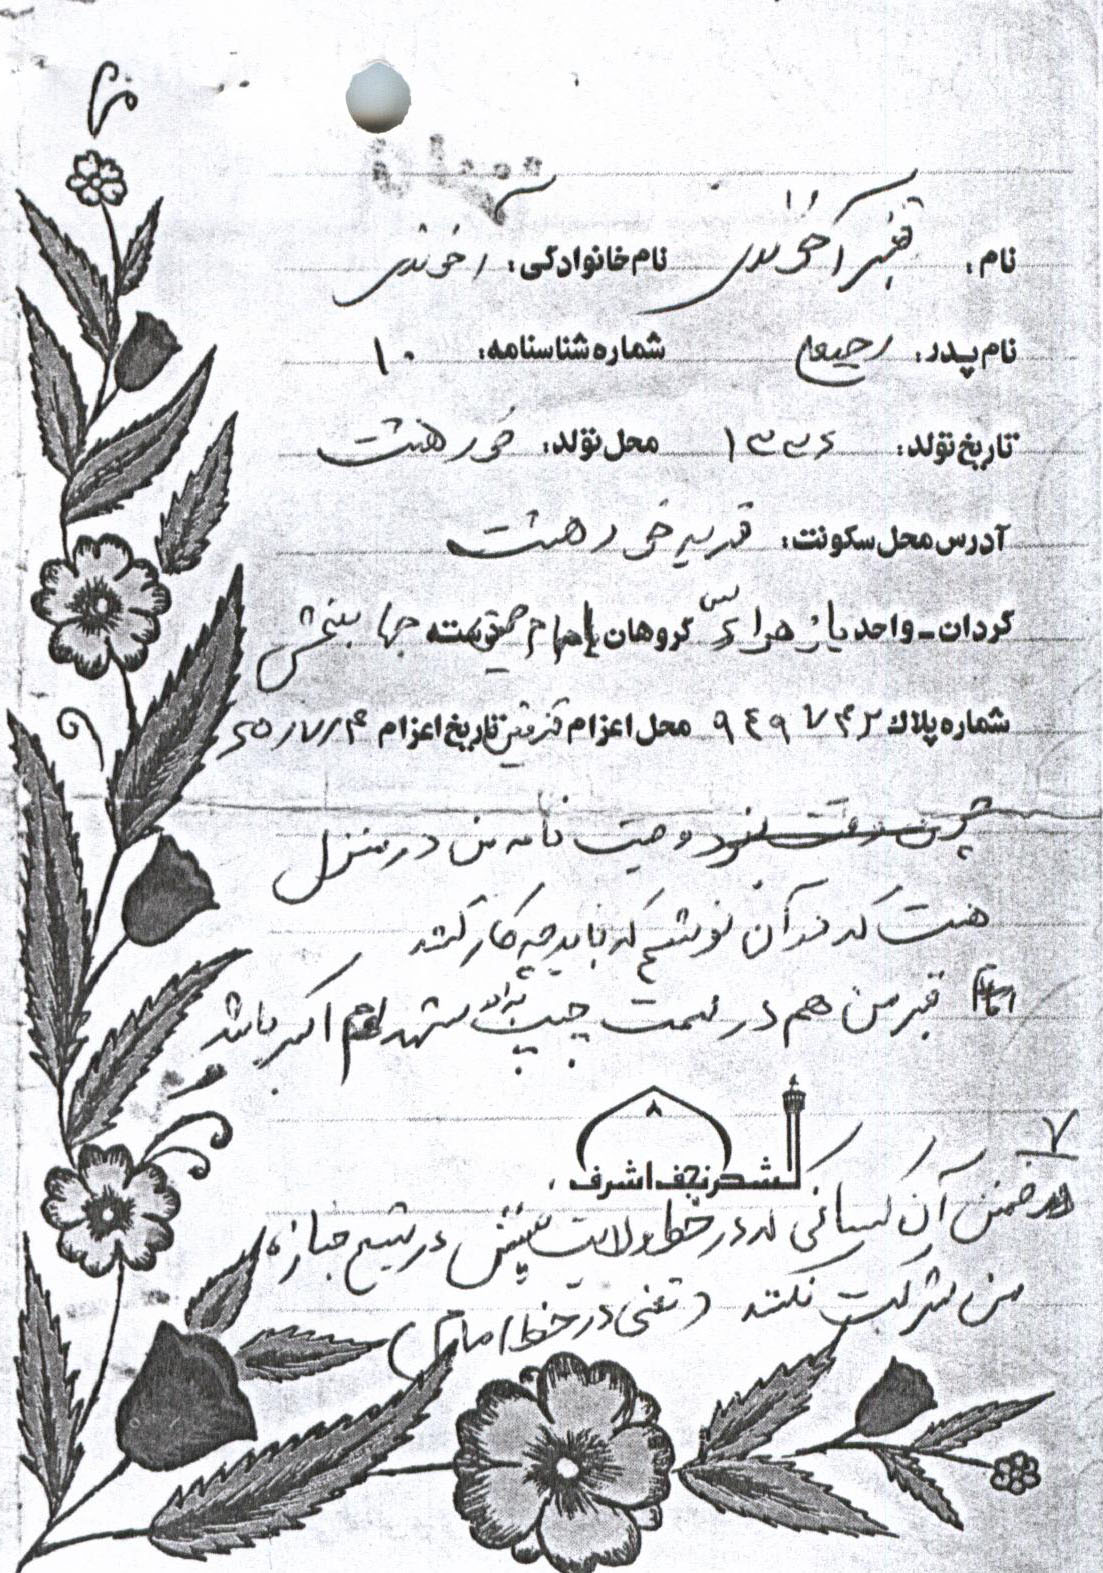 نام: قنبر آخوندی نام خانوادگی: اخوندی
نام پدر: شماره شناسنامه: ۱۰
تاریخ تولد: ۱۳۳۶ محل تولد: خورهشت
آدرس محل سکونت: قدیه خورهشت
گردان-واحد یازهرا گروهان امام دسته جهانبخش
شماره پلاک ۹۴۹۷۴۲ محل اعزام قزوین تاریخ اعزام ۶۵/۷/۴
چون وقت نبود وصیت نامه من در منزل
هست که در آن نوشتم که باید چه کار کنند
قبر من هم در سمت چپ شهید اکبر باشد
۸
لشکر نجف اشرف
۷
در ضمن آن کسانی که در خط ولایت نیستند در تشیع جنازه
من شرکت نکنند (یعنی در خط امام)